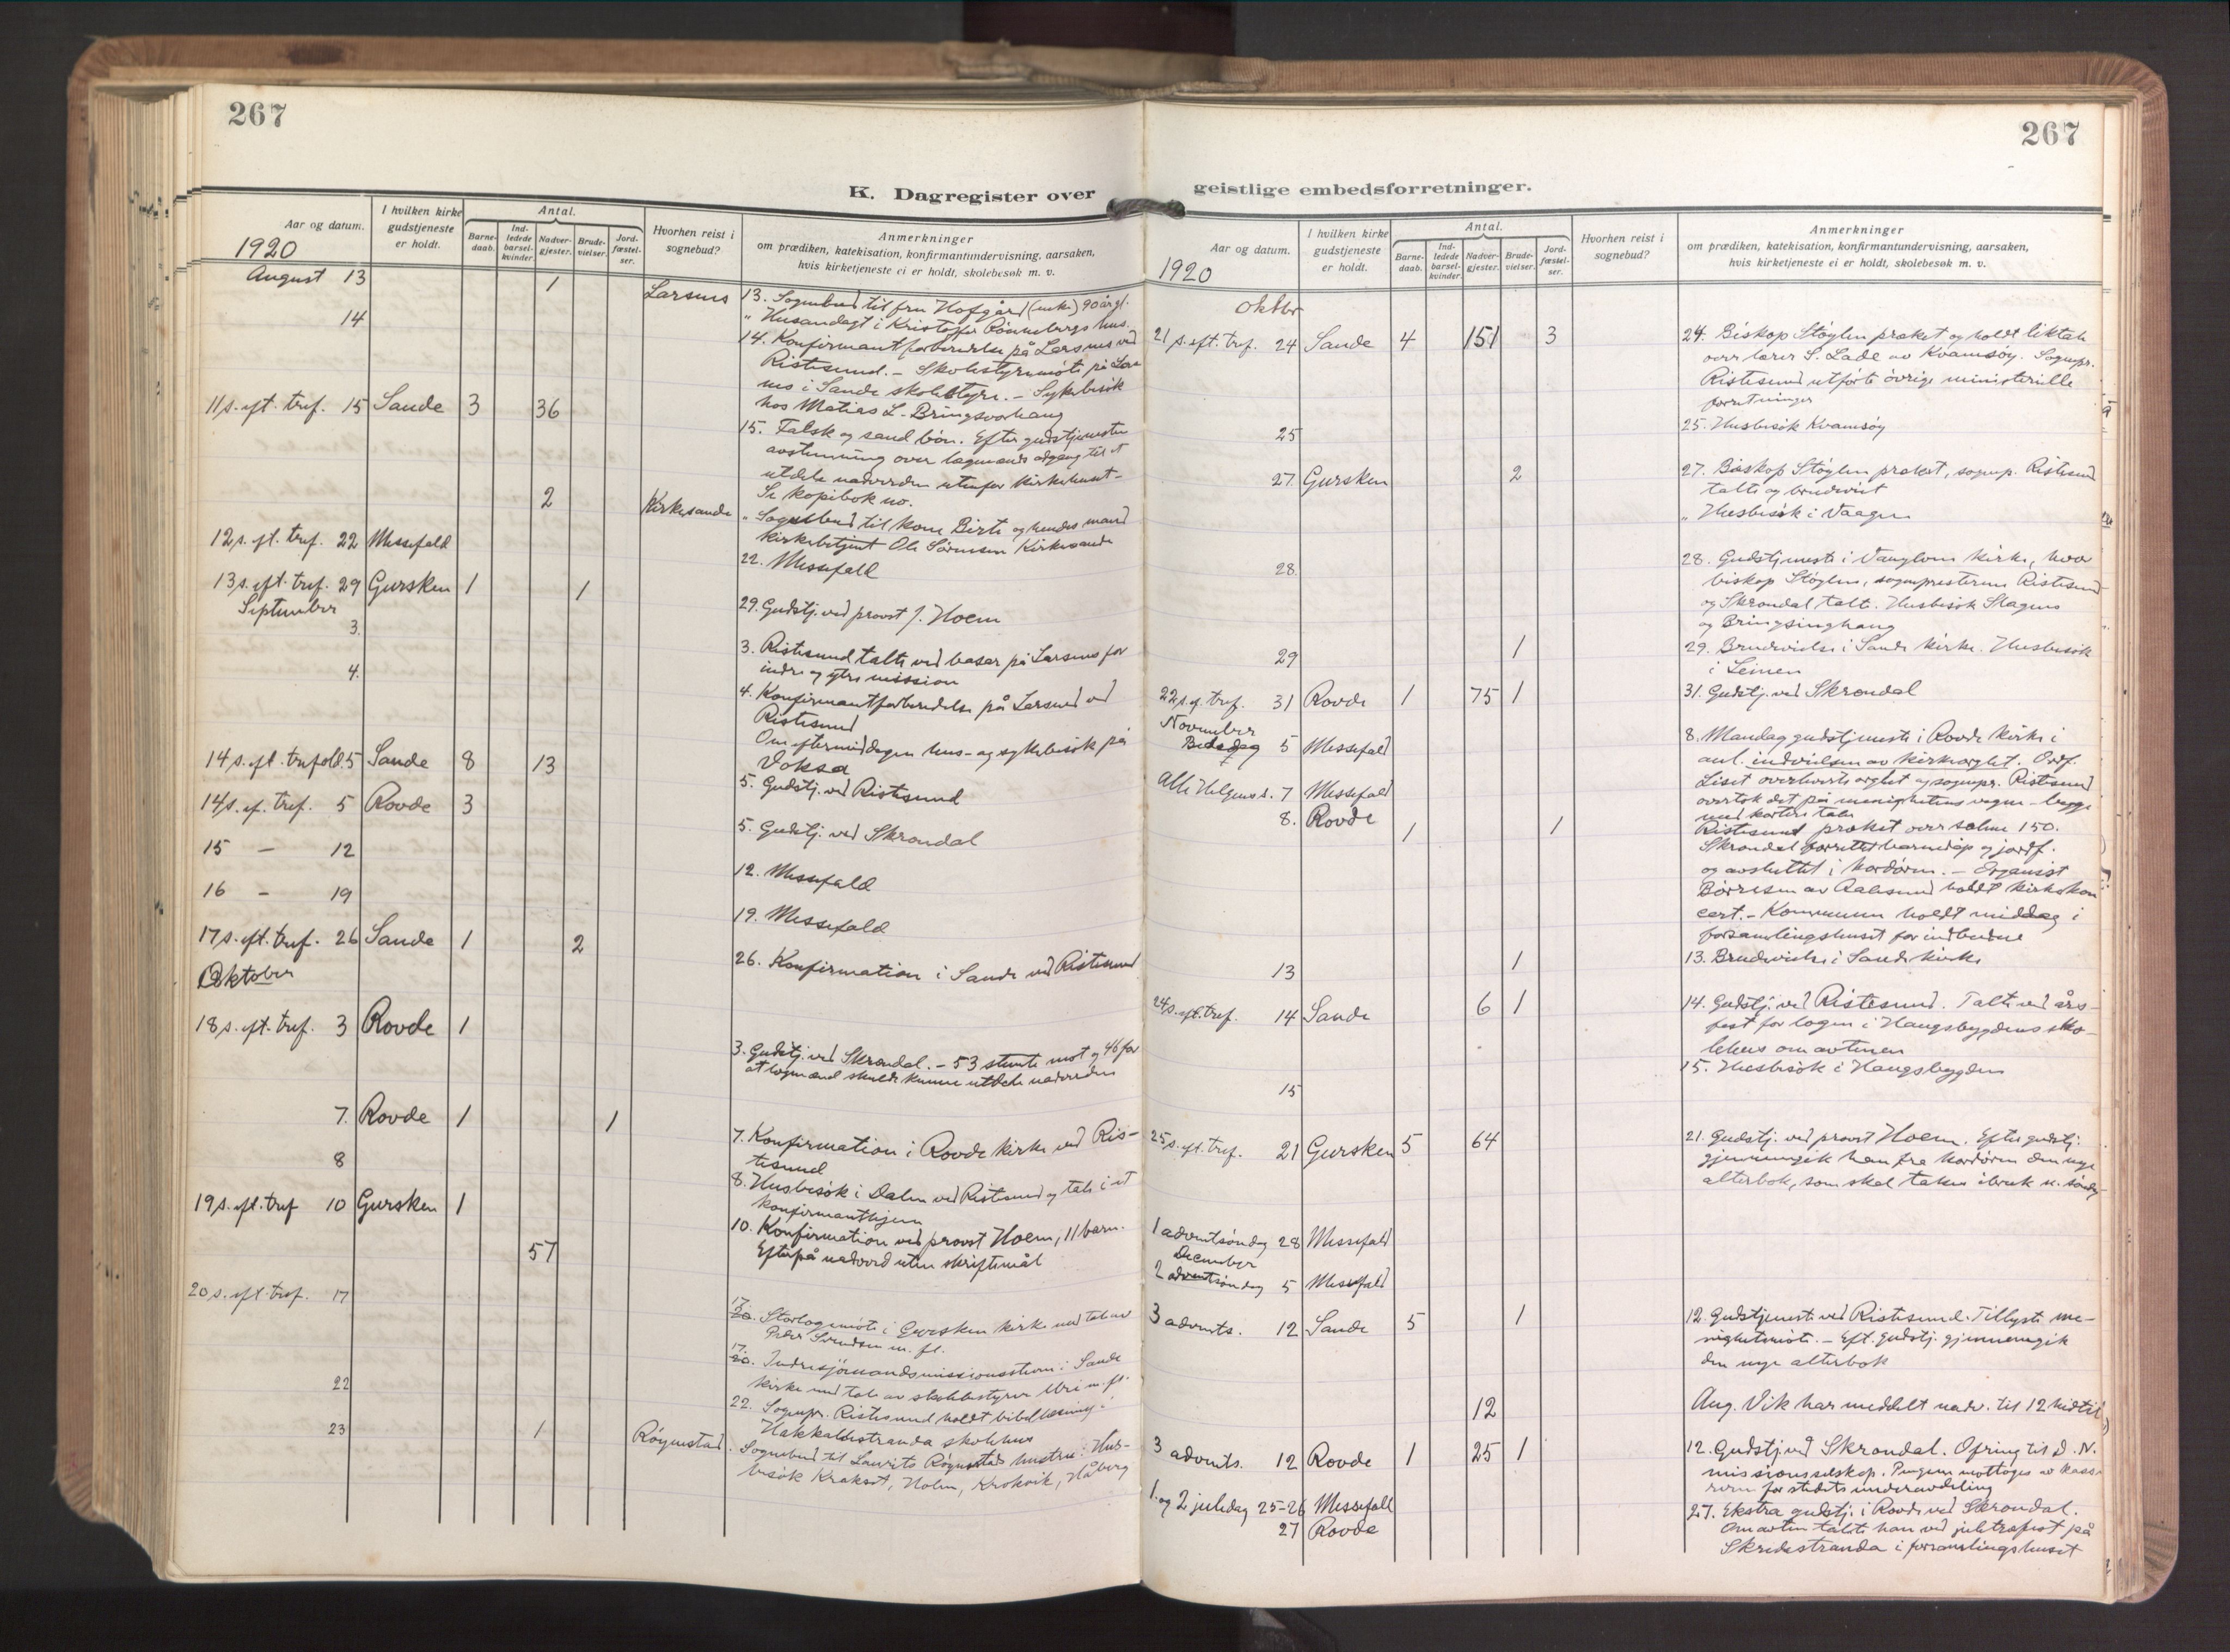 267
K. Dagregister over
Aar og datum.
I hvilken kirke
gudstjeneste
er holdt.
Antal.
Barne-
daab.
Ind-
ledede
barsel-
kvinder.
Nadver-
gjester.
Brude-
vielser.
Jord-
fæstel-
ser.
Hvorhen reist i
sognebud?
Anmerkninger
om prædiken, katekisation, konfirmantundervisning, aarsaken,
hvis kirketjeneste ei er holdt, skolebesøk m. v.
1920
August 13 1 Larsnes
13. Sognebud til fru Hofgård (enke) 90 år gl.
" Husandagt i Kristoffer Rönnebergs hus.
14
14. Konfirmantforberedelse på Larsnes ved
Ristesund. - Skolestyremöte på Lars
nes i Sande skolestyre. - Sykebesök
hos Matias L. Bringsvorhaug
11 s. eft. tref. 15 Sande 3 36
15. Falsk og sand bön. Efter gudstjenesten
avstemning over lægmænds adgang til at
utdele nadverden utenfor kirkehuset -
Se kopibok no.
2 Kirkesande
" Sognebud til kone Birte og hendes mand
kirkebetjent Ole Sörensen Kirkesande
12 s. eft. tref. 22 Messefald
22. Messefald
13 s. eft. tref. 29 Gursken 1 1
29. Gudstj. ved provst J. Hoem
September
3.
3. Ristesund talte ved basar på Larsnes for
indre og ytre mission
4.
4. Konfirmantforberedelse på Larsnes ved
Ristesund
Om eftermiddagen hus- og sykebesök på
Voksa
14 s. eft. trefold. 5 Sande 8 13
5. Gudstj. ved Ristesund
14 s. ef. tref. 5 Rovde 3
5. Gudstj. ved Skrondal
15 - 12
12. Messefald
16 - 19
19. Messefald
17 s. eft. tref. 26 Sande 1 2
26. Konfirmation i Sande ved Ristesund
Oktober
18 s. eft. tref. 3 Rovde 1
3. Gudstj. ved Skrondal. - 53 stemte mot og 46 for
at lægmænd skulde kunne utdele nadverden
7. Rovde 1 1
7. Konfirmation i Rovde kirke ved Ris-
tesund
8
8. Husbesök i Dalen ved Ristesund og tale i et
konfirmanthjem
19 s. eft. tref 10 Gursken 1
57
10. Konfirmation ved provst Hoem, 11 barn.
Efterpå nadverd uten skriftemål
20 s. eft. tref. 17
17. Storlogemöte i Gursken kirke med tale av
Peder Svendsen m. fl.
17. Indresjömandsmissionsstevne i Sande
kirke med tale av skolebestyrer Uri m. fl.
22
22. Sognepr. Ristesund holdt bibellæsning i
Hakkaldestranda skolehus
23 1 Röynestad.
Sognebud til Laurits Röynestads hustru. Hus-
besök Krakset, Holen, Krokvik, Håberg
267
geistlige embedsforretninger.
Aar og datum.
I hvilken kirke
gudstjeneste
er holdt.
Antal.
Barne-
daab.
Ind-
ledede
barsel-
kvinder.
Nadver-
gjester.
Brude-
vielser.
Jord-
fæstel-
ser.
Hvorhen reist i
sognebud?
Anmerkninger
om prædiken, katekisation, konfirmantundervisning, aarsaken,
hvis kirketjeneste ei er holdt, skolebesøk m. v.
1920
Oktbr
21 s. eft. tref. 24 Sande 4 151 3
24. Biskop Stöylen præket og holdt liktale
over lærer S. Lade av Kvamsöy. Sognepr.
Ristesund utförte övrige ministerielle
forretninger
25
25. Husbesök Kvamsöy
27. Gursken 2
27. Biskop Stöylen præket, sognep. Ristesund
talte og brudeviet
" Husbesök i Vaagen
28.
28. Gudstjeneste i Vanylven kirke, hvor
biskop Stöylen, sogneprestene Ristesund
og Skrondal talte. Husbesök Slagnes
og Bringsinghaug
29 1
29. Brudevielse i Sande kirke. Husbesök
i Leinen
22 s. ef. tref. 31 Rovde 1 75 1
31. Gudstj. ved Skrondal
November
Bededag 5 Messefald
Alle Helgens d. 7 Messefald
8. Rovde 1 1
8. Mandag gudstjeneste i Rovde kirke i
anl. indvielsen av kirkeorglet. Ordf.
Liset overleverte orglet og sognepr. Ristesund
overtok det på menighetens vegne - begge
med kortere tale
Ristesund præket over salme 150.
Skrondal forrettet barnedåp og jordf.
og avsluttet i kordören. - Organist
Börresen av Aalesund holdt kirkekon
cert. - Kommunen holdt middag i
forsamlingshuset for indbudne
13 1
13. Brudevielse i Sande kirke
24 s. eft. tref. 14 Sande 6 1
14. Gudstj. ved Ristesund. Talte ved års-
fest for logen i Haugsbygdens sko-
lehus om avtenen
15
15. Husbesök i Haugsbygden
25 s. eft. tref. 21 Gursken 5 64
21. Gudstj. ved provst Hoem. Efter gudstj.
gjennemgik han fra kordören den nye
alterbok, som skal takes i bruk n. söndag
1 adventsöndag 28 Messefald
December
2 adventsöndag 5 Messefald
3 advents. 12 Sande 5 1
12. Gudstjeneste ved Ristesund. Tillyste me-
nighetsmöte. - Eft. gudstj. gjennemgik
den nye alterbok
12
Aug. Vik har meddelt nadv. til 12 hidtil
3 advents. 12 Rovde 1 25 1
12. Gudstj. ved Skrondal. Ofring til d. N.
missionsselskap. Pengene mottoges av kasse-
reren for stedets underavdeling
1. og 2 juledag 25-26 Messefall
27 Rovde
27. Ekstra gudstj. i Rovde ved Skrondal.
Om avten talte han ved juletræfest på
Skredestranda i forsamlingshuset